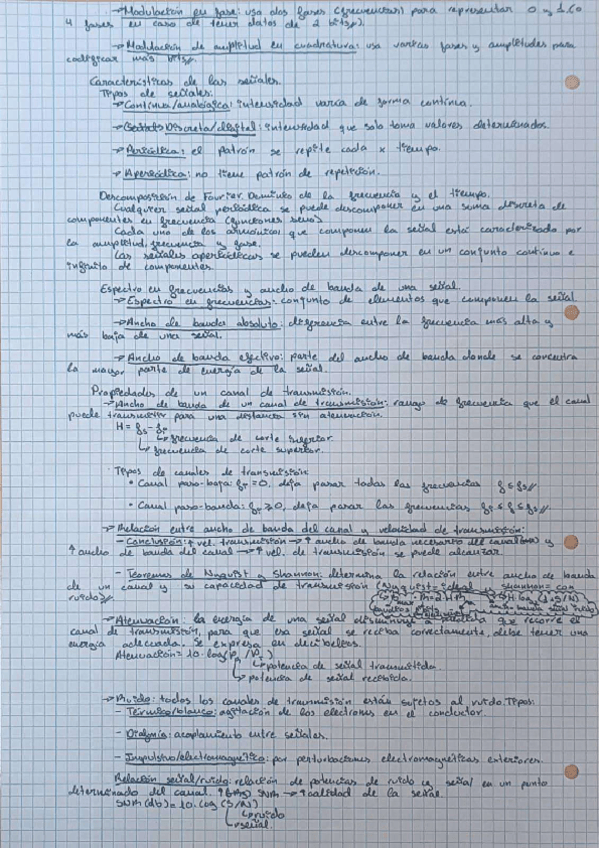 →Modulación en fase: usa dos fases (frecuencias) para representar 0 y 1. (o
4 fases en caso de tener datos de 2 bits)//
→Modulación de amplitud en cuadratura: usa varias fases y amplitudes para
codificar más bits//
Características de las señales.
Tipos de señales:
→Continua/analógica: intensidad varía de forma continua.
→Discreta/digital: intensidad que solo toma valores determinados.
→Periódica: el patrón se repite cada x tiempo.
→Aperiódica: no tiene patrón de repetición.
Descomposición de Fourier. Dominio de la frecuencia y el tiempo.
Cualquier señal periódica se puede descomponer en una suma discreta de
componentes en frecuencia (funciones seno)
Cada uno de los armónicos que componen la señal está caracterizado por
la amplitud, frecuencia y fase.
Las señales aperiódicas se pueden descomponer en un conjunto continuo e
infinito de componentes.
Espectro en frecuencias y ancho de banda de una señal.
→Espectro en frecuencias: conjunto de elementos que componen la señal
→Ancho de banda absoluto: diferencia entre la frecuencia más alta y
más baja de una señal.
→Ancho de banda efectivo: parte del ancho de banda donde se concentra
la mayor parte de energía de la señal.
Propiedades de un canal de transmisión.
→Ancho de banda de un canal de transmisión: rango de frecuencia que el canal
puede transmitir para una distancia sin atenuación.
H = fs - fi
↳frecuencia de corte superior.
↳frecuencia de corte superior.
Tipos de canales de transmisión
• Canal paso-baja: fi = 0, deja pasar todas las frecuencias f ≤ fs//
• Canal paso-banda: fi ≥ 0, deja pasar las frecuencias fi ≤ f ≤ fs//
→Relación entre ancho de banda del canal y velocidad de transmisión:
- Conclusión: ↑ vel. transmisión → ↑ ancho de banda necesario del canal y
↑ ancho de banda del canal → ↑ vel. de transmisión se puede alcanzar
- Teoremas de Nyquist y Shannon: determina la relación entre ancho de banda
de un canal y su capacidad de transmisión (Nyquist = ideal y shannon = con
ruido)//
→Atenuación: la energía de una señal disminuye a medida que recorre el
canal de transmisión, para que esa señal se reciba correctamente, debe tener una
energía adecuada. Se expresa en decibelios.
Atenuación = 10·log(
↳potencia de señal transmitida.
↳potencia de señal recibida.
→Ruido: todos los canales de transmisión están sujetos al ruido. Tipos:
- Térmico/blanco: agitación de los electrones en el conductor.
- Diafonía: acoplamiento entre señales.
- Impulsivo/electromagnético: por perturbaciones electromagnéticas exteriores.
Relación señal/ruido: relación de potencias de ruido y señal en un punto
determinado del canal. SNR → ↑calidad de la señal.
SNR (db) = 10·log (S/N)
↳ruido
↳señal.